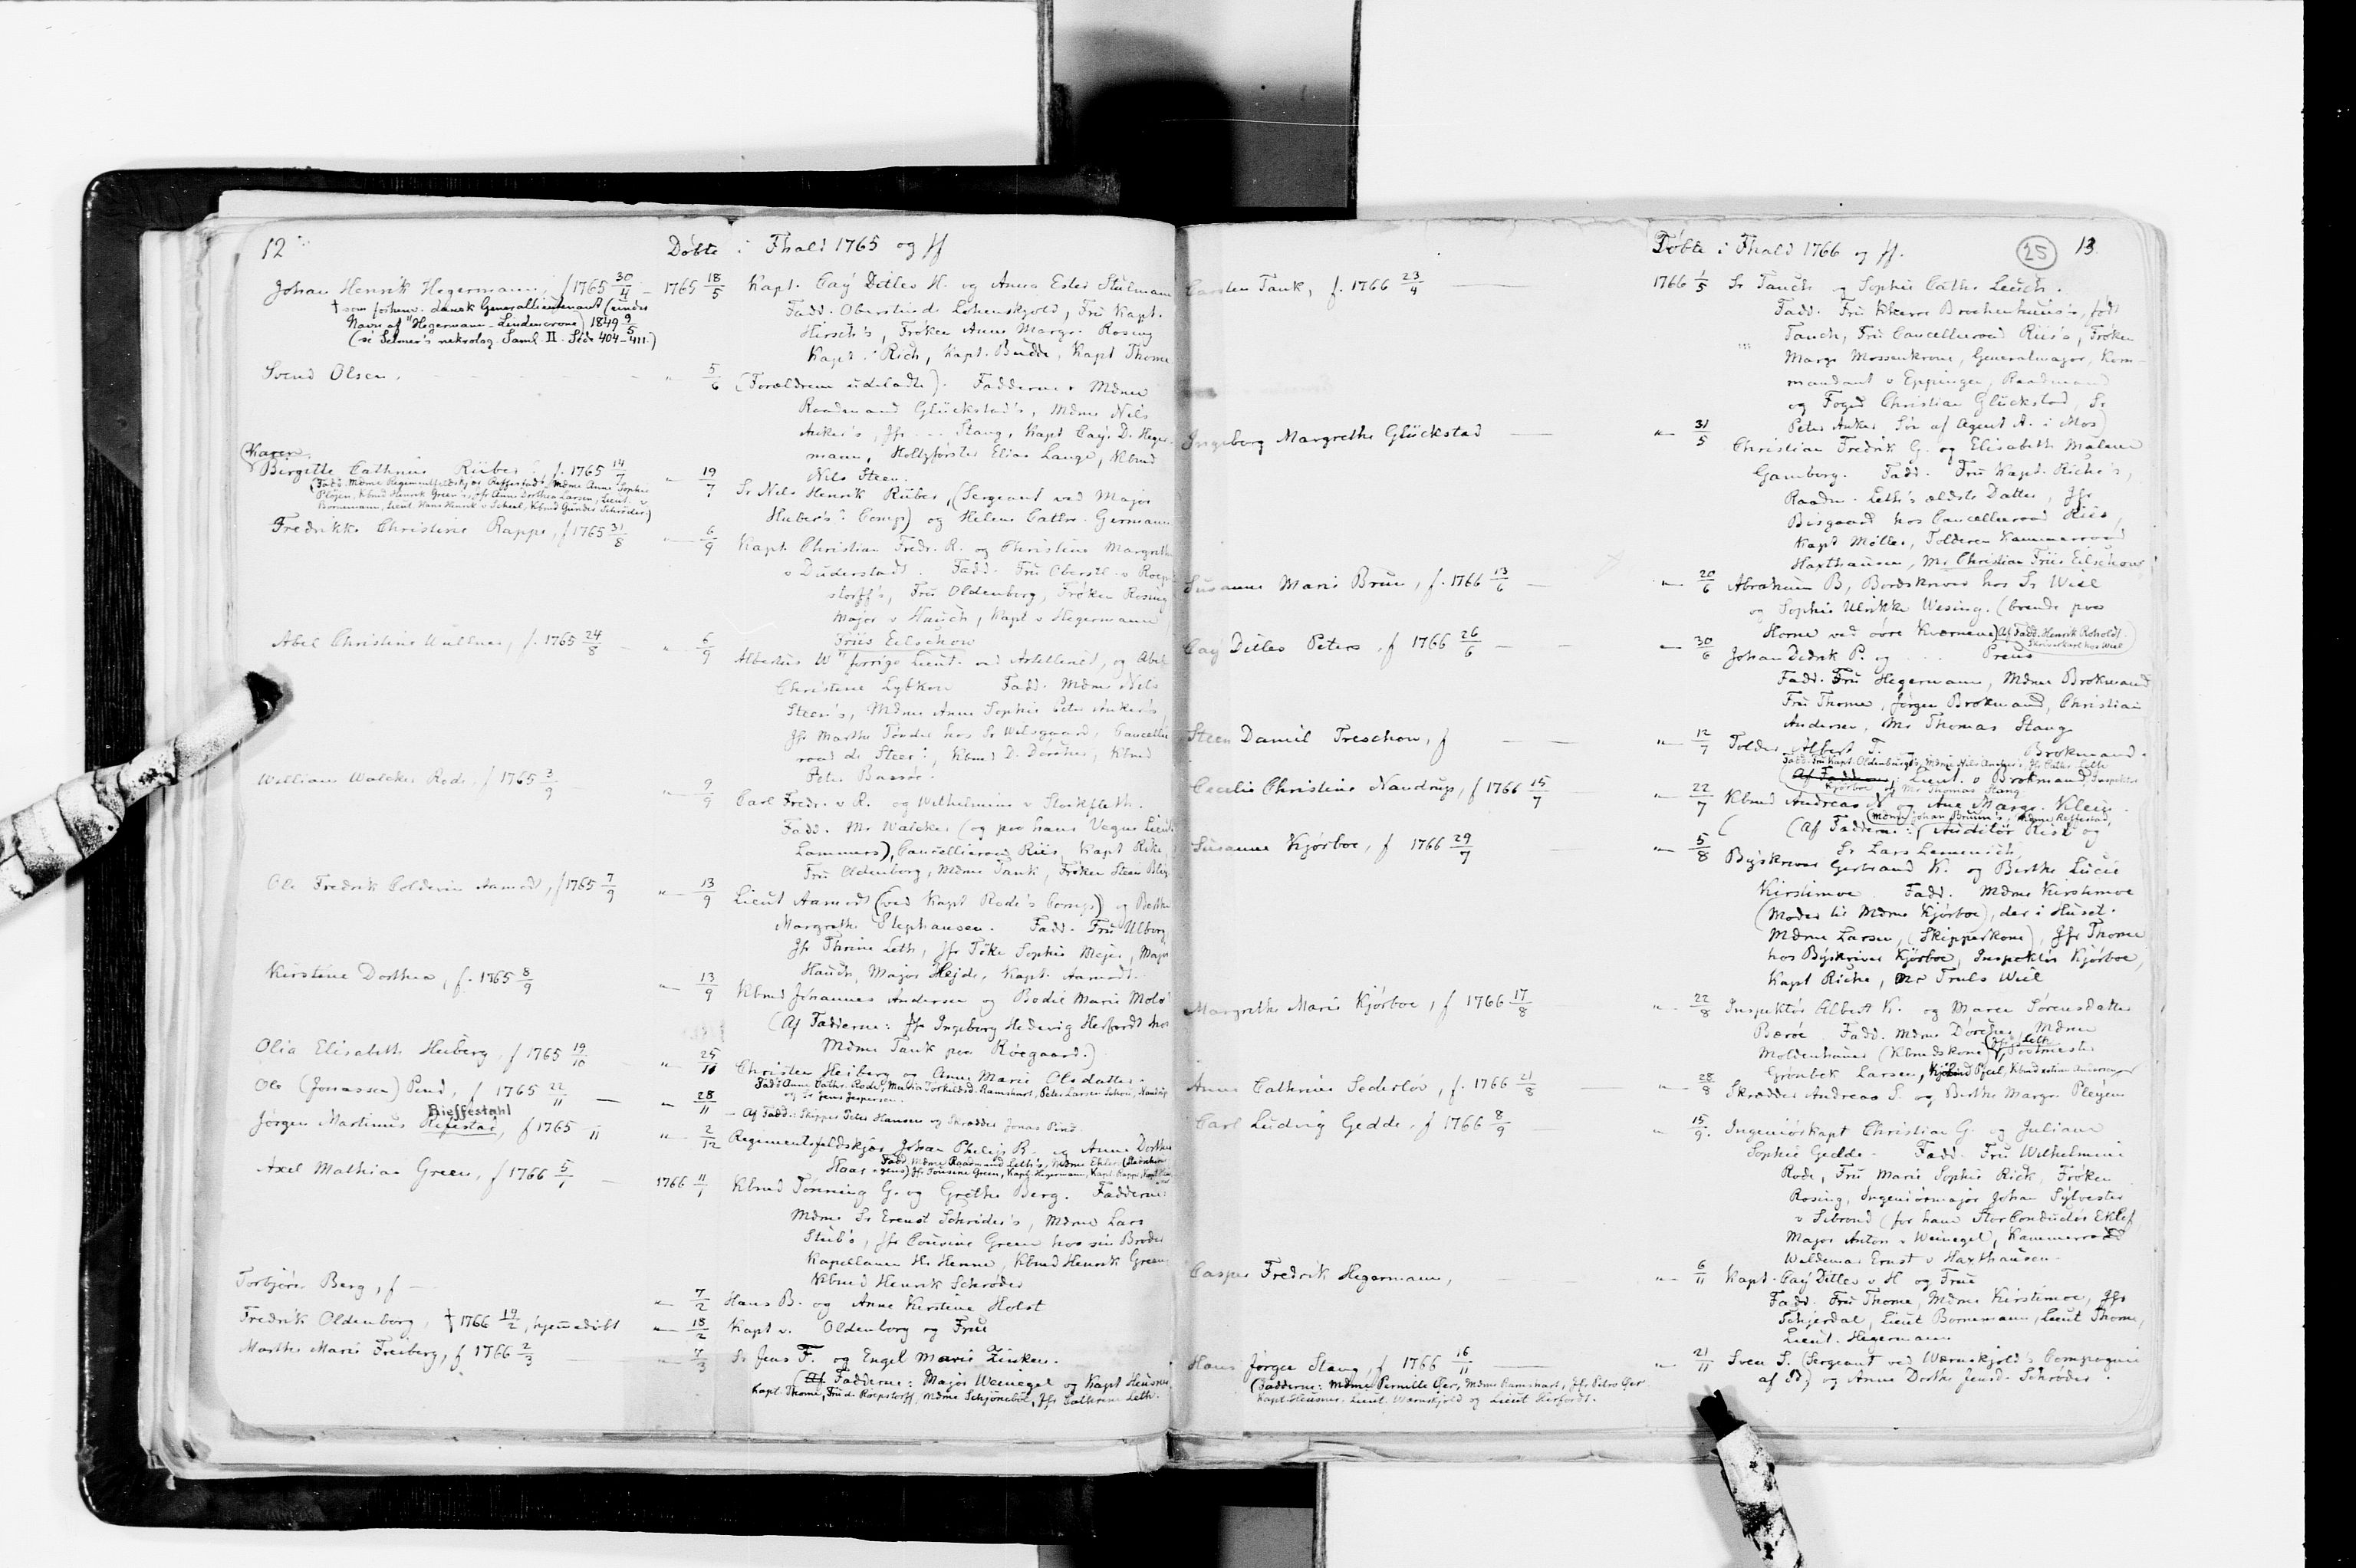 12
Døbte i Fhald 1765 og ff
Johan Henrik Hegermann, f 1765 30/4 — 1765 18/5 Kapt. Caÿ Ditlev H. og Anna Ester Stulmann
† som forhenv. dansk Generallieutenant (under
Navn af "Hegermann-Lindencrone") 1849 9/5
(se Selmer's nekrolog. Saml. II. Side 404-411.)
Fadd. Oberstinde Løhenskjold, Fru Kapt.
Hirsch's, Frøken Anne Margr. Rosing
Kapt. Rich, Kapt. Budde, Kapt Thome
Svend Olsen. " 5/6 (Forældrene udeladte). Fadderne: Mdme
Raadmand Glückstad's, Mdme Nils
Anker's, Jfr ... Stang, Kapt Caÿ D. Heger-
mann, Holtzførster Elias Lange, Kbmd
Nils Steen.
(Karen)
Birgitte Cathrine Rüber, f. 1765 14/7 " 19/7 Sr Nils Henrik Rüber, (Sergeant ved Major
(Fadd. Mdme Regimentfeldskjær Reffestad's, Mdme Anne Sophie
Pløjen, Kbmd Henrik Green's, Jfr Anne Dorthea Larsen, Lieut. v
Bornemann, Lieut. Hans Henrik v Scheel, Kbmd Gunder Schrøder)
Huber's? Comp) og Helene Cathr. Germann
Fredrikke Christine Rappe, f 1765 31/8 " 6/9 Kapt. Christian Fredr. R. og Christine Margreth
v Duderstadt. Fadd. Fru Oberstl. v Roep-
storff's, Fru Oldenborg, Frøken Rosing
Major v Hauch, Kapt v Hegermann
Friis Eilschow
Abel Christine Wullner, f. 1765 24/8 " 6/9 Albertus W forrige Lieut. ved Artelleriet, og Abel
Christine Lybkou Fadd. Mdme Nils
Steen's, Mdme Anne Sophie Peter Anker's,
Jfr Marthe Tønder hos Sr Wilsgaard, Cancelli-
raad de Steen, Kbmd D. Dorcher, Kbmd
Peter Bassøe.
William Walcker Rode, f 1765 3/9 " 9/9 Carl Fredr. v R. og Wilhelmine v Stockfleth.
Fadd. Mr Walcker (og paa hans Vegne Lieut.
Lammers), Cancelliraad Riis, Kapt Riche,
Fru Oldenborg, Mdme Tank, Frøken Steen Blix
Ole Fredrik Coldevin Aamodt, f 1765 7/9 " 13/9 Lieut Aamodt (ved Kapt Rode's Comp) og Berthe
Margrethe Stephansen. Fadd. Fru Ulborg
Jfr Thrine Leth, Jfr Tøke Sophie Mejer, Major
Hauch, Major Hejde, Kapt. Aamodt.
Kirstine Dorthea, f. 1765 8/9 " 13/9 Kbmd Johannes Andersen og Bodil Marie Molo
(Af Fadderne: Jfr Ingeborg Hedevig Herfordt hos
Mdme Tank paa Røegaard.)
Olia Elisabeth Heiberg, f 1765 19/10 " 25/10 Christen Heiberg og Anne Marie Olsdatter.
Fadd Anne Cathr. Rode, Maria Torkildsd. Ramshart, Peter Larsen Schou,
og Sr Jens Jespersen.
Ole (Jonassen) Pind, f 1765 22/11 — " 28/11 — Af Fadd.: Skipper Peter Hansen og Skrædder Jonas Pind.
Rieffestahl
Jørgen Martinus Refestad, f 1765 /11 " 2/12 Regimentsfeldskjær Johan Philip R. og Anne Dorthea
Haas Fadd. Mdme Raadmand Leth's, Mdme Ehlers,
Jfr Tousine Green, Kapt. Hegermann, Kapt. Rappe,
Axel Mathias Green, f 1766 5/1 — 1766 11/1 Kbmd Tønning G. og Grethe Berg. Fadderne:
Mdme Sr Ernst Schrøder's, Mdme Lars
Stub's, Jfr Tousine Green hos sin Broder
Kapellanen Hr Henne, Kbmd Henrik Green,
Kbmd Henrik Schrøder
Torbjørn Berg, f — " 7/2 Hans B. og Anne Kirstine Holst
Fredrik Oldenborg, † 1766 19/2, hjemmedøbt " 18/2 Kapt v. Oldenborg og Frue
Marthe Marie Freiberg, f 1766 2/3 " 7/3 Sr Jens F. og Engel Marie Zinken.
(Af Fadderne: Major Weinegel og Kapt Heusner,
Kapt. Thome, Frue de Roepstorff, Mdme Schjønebøl, Jfr Cathrine Leth.
Døbte i Fhald 1766 og ff. (25) 13
Carsten Tank, f. 1766 23/4 — 1766 1/5 Sr Tanch og Sophie Cathr. Leuch.
Fadd. Fru Kkerre Brochenhuus's, født
Tanch, Fru Cancelliraad Riis's, Frøken
Margr Mossenkrone, Generalmajor, Kom-
mandant v Eppinger, Raadmand
og Foged Christian Glückstad, Sr
Peter Anker, Søn af Agent A. i Mos)
Ingeborg Margrethe Glückstad — " 31/5 Christian Fredrik G. og Elisabeth Malene
Gamborg. Fadd. Fru Kapt. Riche's,
Raadm. Leth's ældste Datter, Jfr
Bisgaard hos Cancelliraad Riis,
Kapt Møller, Tolderen Kammerraad
Haxthausen, Mr Christian Friis Eilschow
Susanne Marie Brun, f. 1766 13/6 — " 20/6 Abraham B, Bordskriver hos Sr Wiel
og Sophie Ulrikke Wesing. (boende paa
Horne ved øvre Kværnene) (Af Fadd. Henrik Roholdt.
Skriverkarl hos Wiel)
Caÿ Ditlev Peters, f 1766 26/6 — " 30/6 Johan Didrik P. og ... Preus
Fadd. Fru Hegermann, Mdme Brokmand
Fru Thome, Jørgen Brokmand, Christian
Andersen, Mr Thomas Stang
Steen Daniel Treschow, f — " 12/7 Tolder Albert T. og Brokmand.
Fadd. Fru Kapt. Oldenburg's, Mdme Nils Anker's, Jfr Cathr. Leth
(Af Fadderne: Lieut. v Brokmand, Inspektør
Kjørboe og Mr Thomas Stang.
Cecilie Christine Naudrup, f 1766 15/7 " 22/7 Kbmd Andreas N. og Ane Margr. Klein.
(Mdme Johan Bruun's, Mdme Reffestad,
(Af Fadderne: (Auditør Rist og
Sr Lars Lemmich)
Susanne Kjørboe, f 1766 29/7 — " 5/8 Byskriver Gerbrand K. og Birthe Lucie
Kirstimoe. Fadd. Mdme Kirstimoe
(Moder til Mdme Kjørboe), der i Huset.
Mdme Larsen, (Skipperkone), Jfr Thome
hos Byskriver Kjørboe, Inspektør Kjørboe,
Kapt Riche, Mr Truls Wiel
Margrethe Marie Kjørboe, f 1766 17/8 " 22/8 Inspektør Albert K. og Maren Sørensdatter
Barøe. Fadd. Mdme Dorcher, Mdme
Moldenhauer (Kbmdskone), (Jfr Leth) Postmester
Grønbek Larsen, Kbmd
Anne Cathrine Sederløv, f. 1766 21/8 " 28/8 Skrædder Andreas S. og Birthe Margr Pleyen
Carl Ludvig Gedde, f 1766 8/9 — " 15/9. Ingeniørkapt Christian G. og Juliane
Sophie Gedde. Fadd. Fru Wilhelmine
Rode, Fru Marie Sophie Rick, Frøken
Rosing, Ingeniørmajor Johan Sylvester
v Sebrond (for ham Stor Conducteur Eklef
Major Anton v Weinegel, Kammerraad
Waldemar Ernst v Haxthausen.
Casper Fredrik Hegermann, — " 6/11 Kapt. Caÿ Ditlev v H og Frue
Fadd. Fru Thome, Mdme Kirstimoe, Jfr
Schjerdal, Lieut Bornemann, Lieut Thome,
Lieut. Hegermann
Hans Jørgen Stang, f 1766 16/11 — " 21/11 Sven S. (Sergeant ved Wærnskjold's Compagnie
af Id) og Anne Dorthe Jensd. Schrøder.
(Fadderne: Mdme Pernille Gjer, Mdme Ramshart, Jfr Petro Gjer
Kapt. Heusner, Lieut. Wærnskjold og Lieut Herfordt.